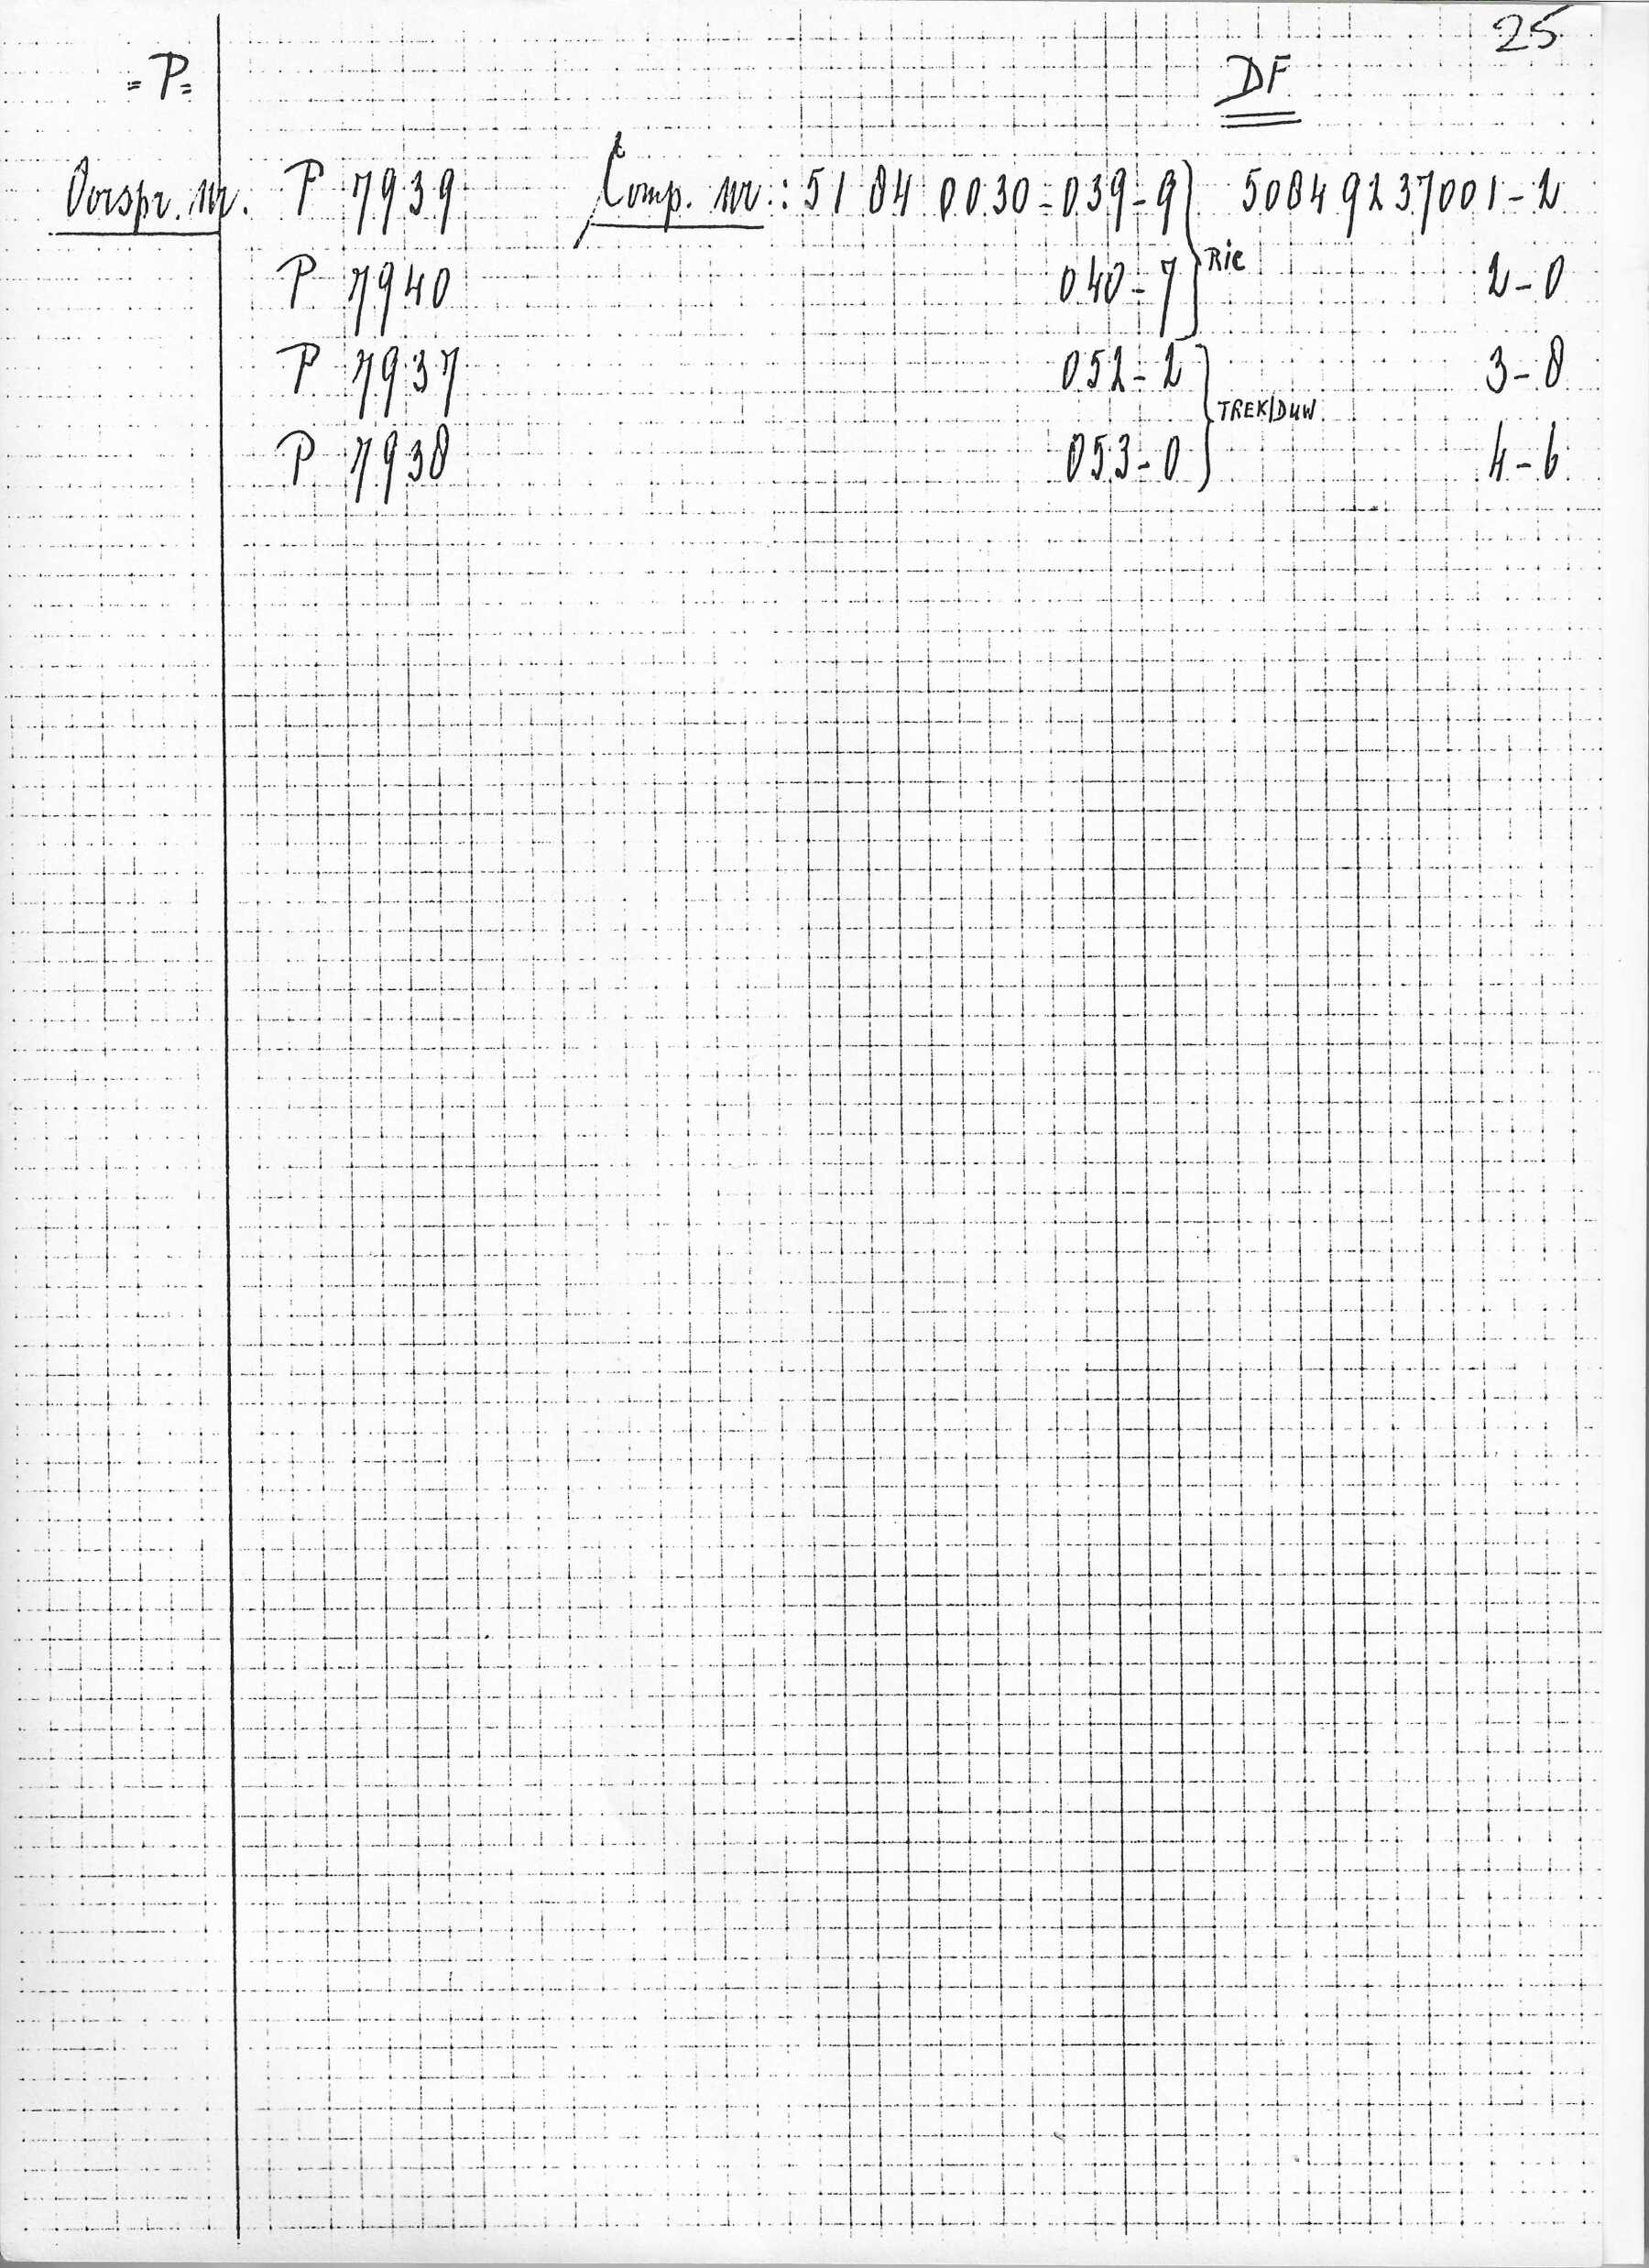 25
=P= DF
Oorspr. nr. P 7939 Comp. nr.: 51 84 0030-039-9 50849237001-2
P 7940 040-7 RIC 2-0
P 7937 052-2 3-8
P 7938 053-0 TREK/DUW 4-6